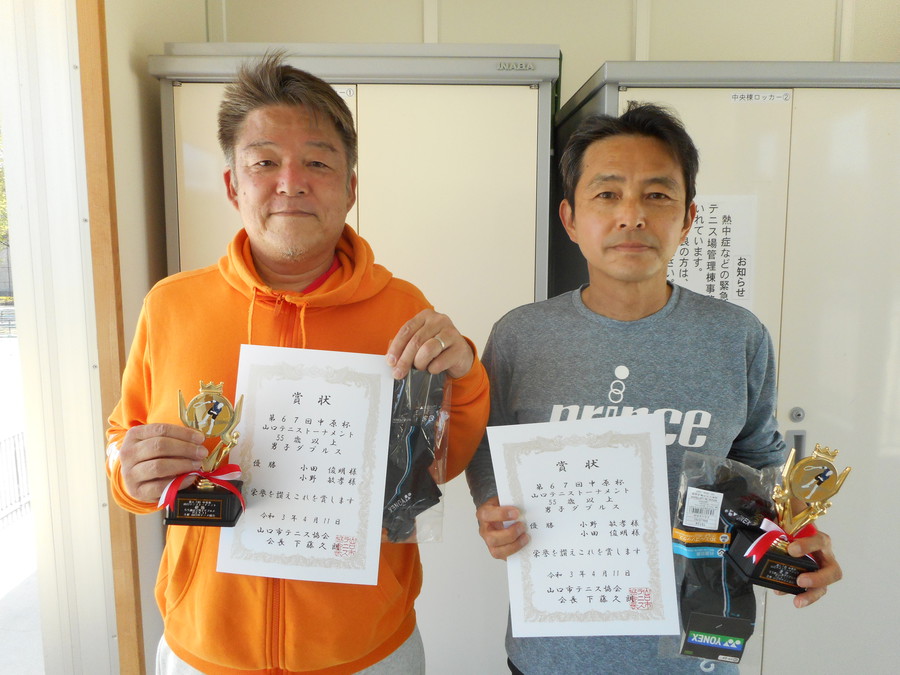 INABA
ー①
中央棟ロッカー②
お知らせ
熱中症などの緊急
テニス場管理棟事
いれています。
良の方は、
賞状
第67回中原杯
山口テニストーナメント
55歳以上
男子ダブルス
優勝 小田 俊明様
小野 敏孝様
栄誉を讃えこれを賞します
令和3年4月11日
山口市テニス協会
会長 下藤文
YONEX
prince
賞状
第67回中原杯
山口テニストーナメント
55歳以上
男子ダブルス
優勝 小野 敏孝様
小田 俊明様
栄誉を讃えこれを賞します
令和3年4月11日
山口市テニス協会
会長 下藤文
YONEX